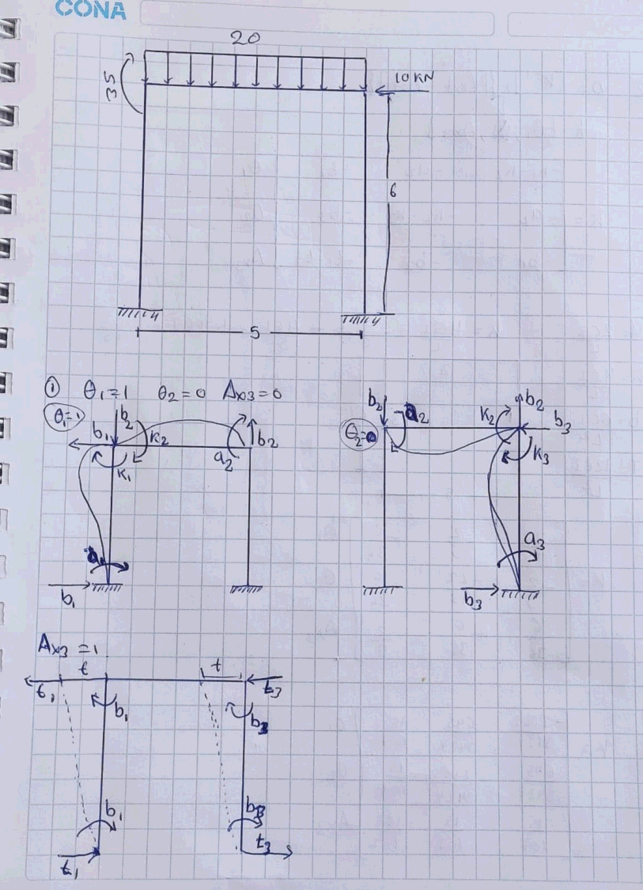 CONA
20
35
10 KN
6
5
① θ₁=1 θ₂=0 Δx3=0
θ₁=1
b₁ b₂ k₂ b₂
k₁ a₂
b₁
b₂ a₂ k₂ b₂ b₃
k₃
a₃
b₃
Δx3=1
t t
t₁ b₁ b₃ t₃
b₁ b₃
t₁ t₃